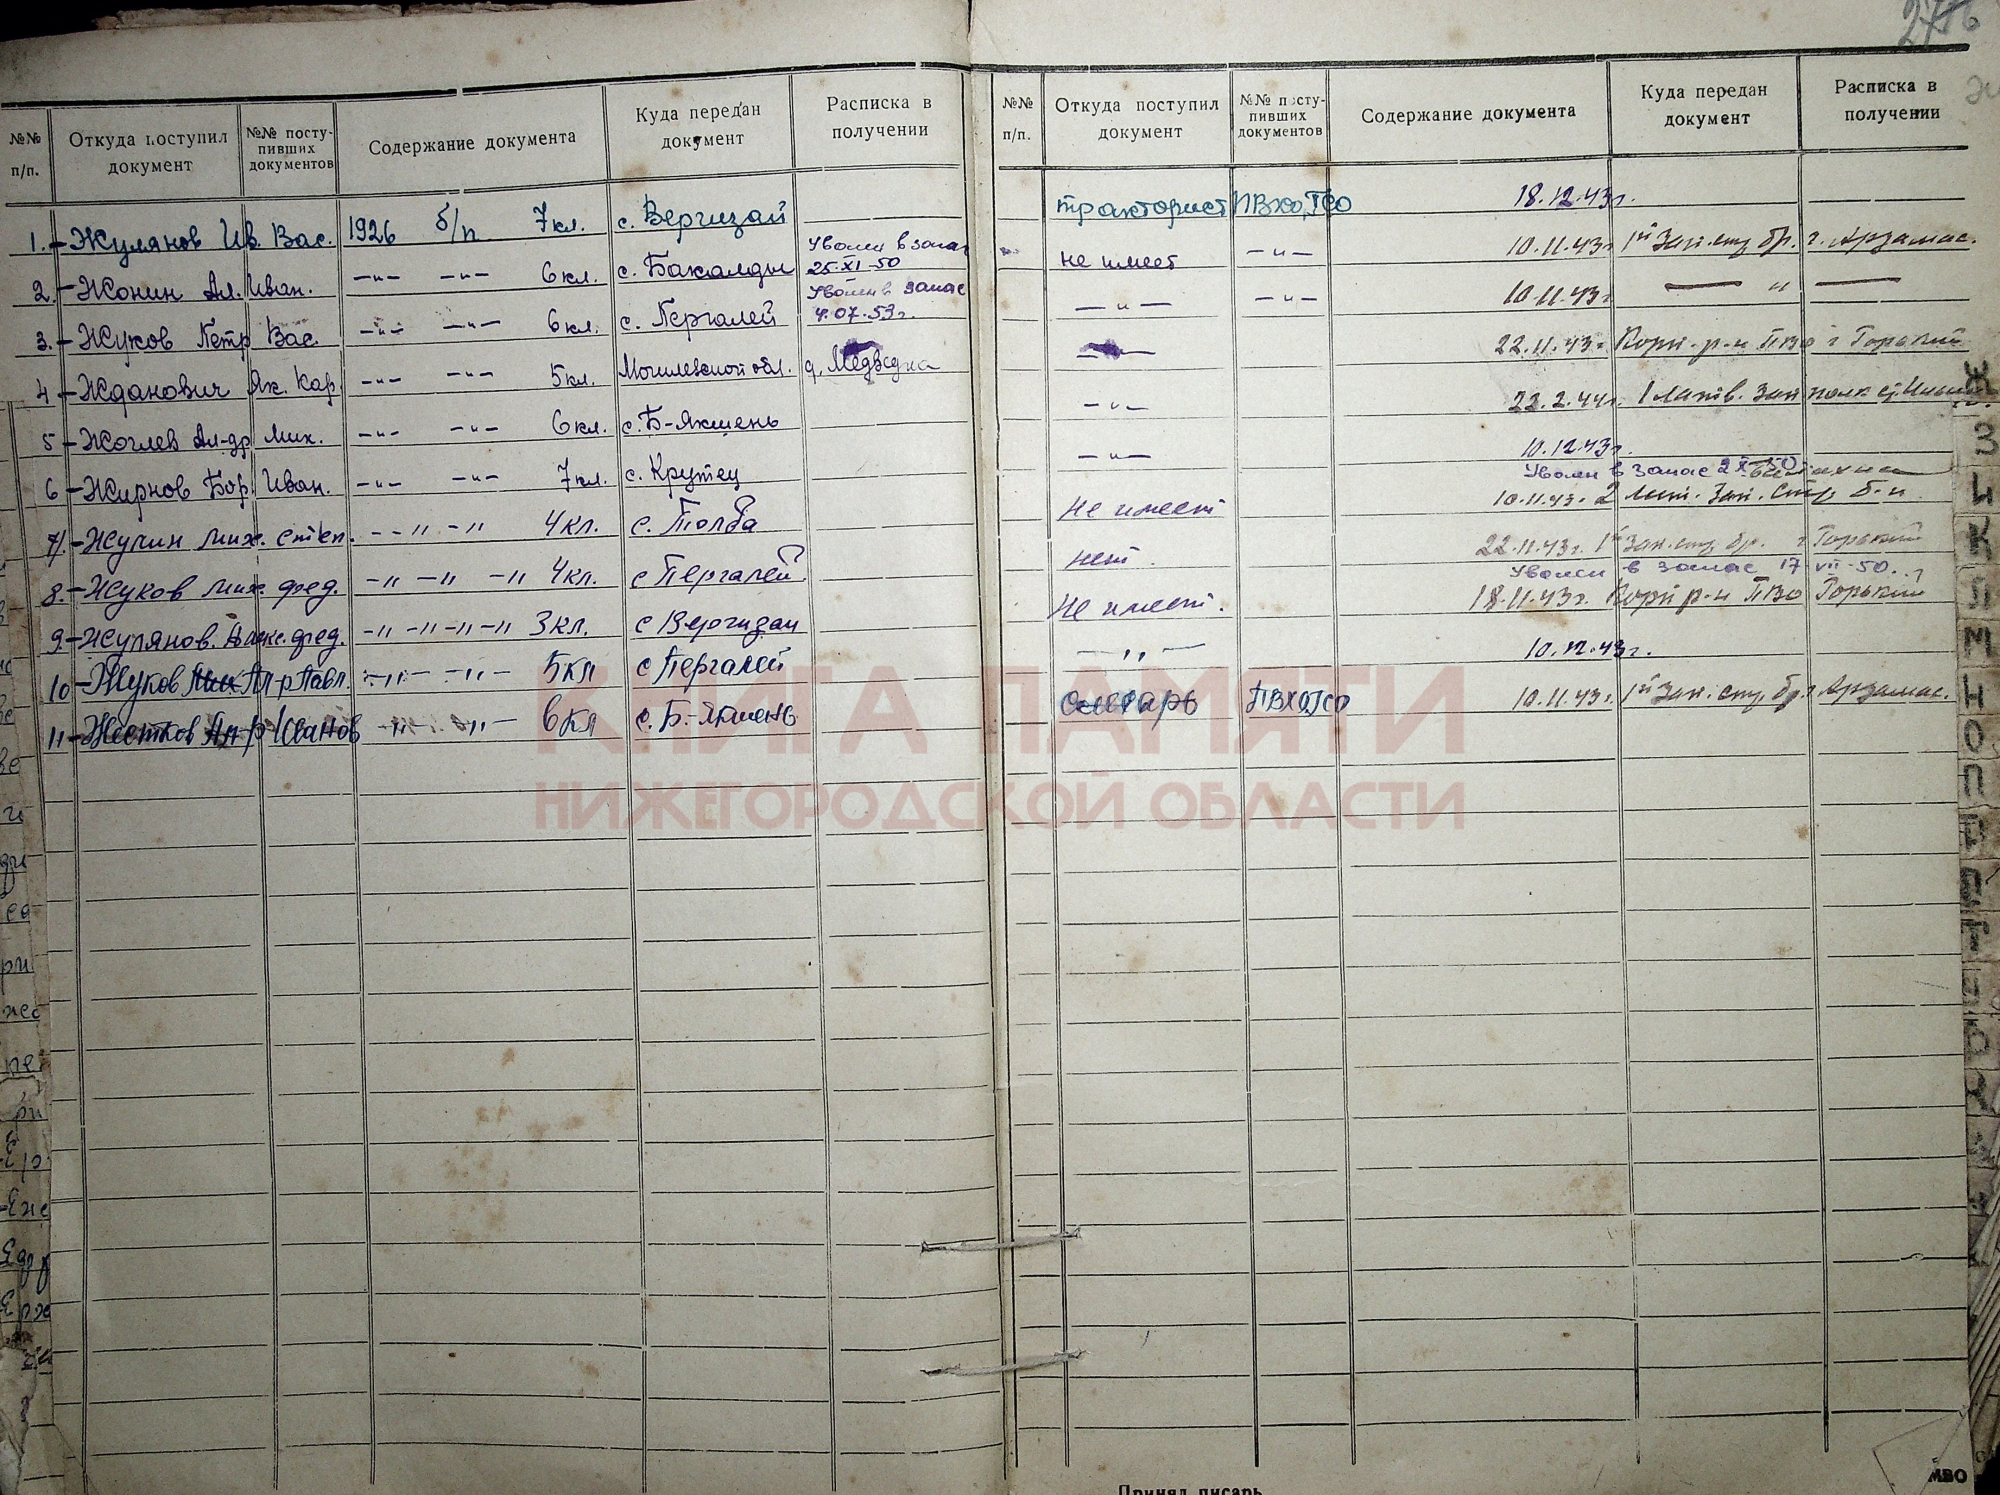 2776
№№ п/п.
Откуда поступил документ
№№ поступивших документов
Содержание документа
Куда передан документ
Расписка в получении
№№ п/п.
Откуда поступил документ
№№ поступивших документов
Содержание документа
Куда передан документ
Расписка в получении
1.- Жулянов Ив. Вас. 1926 б/п 7кл. с. Вергизай
тракторист ПВХО, ГСО 18.12.43г.
2.- Жонин Ал. Иван. -"- -"- 6кл. с. Бакалды Уволен в запас 25-XI-50
не имеет -"- 10.11.43г 1й Зап. стр бр. г. Арзамас.
3.- Жуков Петр Вас. -"- -"- 6кл. с. Пергалей Уволен в запас 4.07.53г.
-"- -"- 10.11.43г. — " —
4 - Жданович Як. Кар. -"- -"- 5кл. Могилевской обл. д. Медведка
22.11.43г Корп. р-н ПВО г Горький
5 - Жоглев Ал-др Мих. -"- -"- 6кл. с. Б-Якшень
-"- 22.2.44г. 1 Латв. Зап полк ст.
6 - Жирнов Бор. Иван. -"- -"- 7кл. с. Крутец
-"- 10.12.43г.
Уволен в запас 2 X-50
7/.- Жулин Мих. Степ. - -"- -" 4кл. с. Толба
Не имеет 10.11.43г. 2 Лат. Зап. Стр. б-н
8.- Жуков Мих. фед. -"-"-" 4кл. с Пергалей
нет. 22.11.43г. 1й Зап. стр бр. г Горький
Уволен в запас 17 VII-50.
9.- Жулянов. Алекс. фед. -"-"-"-" 3кл. с Вергизаи
Не имеет. 18.11.43г. Корп р-н ПВО Горький
10 - Жуков Ал-р Павл. -"- -"- 5кл с Пергалей
-"- 10.12.43г.
11 - Жестков Ал-р Иванов -"- "- 6кл с. Б.-Якшень
Слесарь ПВХО, ГСО 10.11.43г. 1й Зап. стр. бр. г Арзамас.
КНИГА ПАМЯТИ
НИЖЕГОРОДСКОЙ ОБЛАСТИ
Ж
З
И
К
Л
М
Н
О
П
Р
Принял писарь
МВО